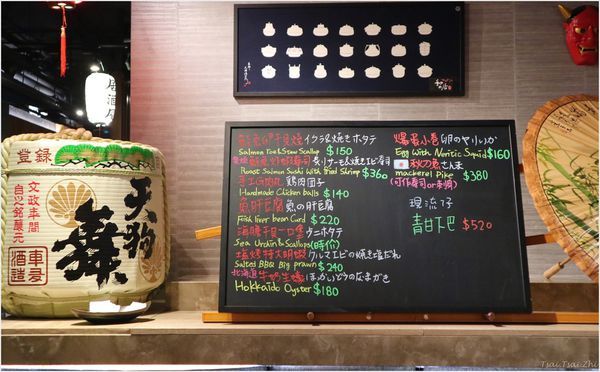 登録
文政年間
自己銘醸元
車多
酒造
天狗
舞
居酒
鮭魚卵干貝燒 イクラ&焼きホタテ
Salmon Roe&Stew Scallop $150
炙燒鮭魚炸蝦壽司 炙りサーモン&焼きエビ寿司
Roast Salmon Sushi With fried Shrimp $360
手工雞肉丸 鶏肉団子
Handmade Chicken balls $140
魚肝豆腐 魚の肝豆腐
Fish liver bean Curd $220
海膽干貝一口堡 ウニホタテ
Sea Urchin&Scallops(時价)
塩烤特大明蝦 クルマエビの焼き塩だれ
Salted BBQ Big prawn $240
北海道牛奶生蠔
Hokkaido Oyster $180
爆蛋小卷 卵のヤリいか
Egg With Neritic Squid $160
秋刀魚 さんま
mackerel Pike $380
(可作壽司or刺身)
現流子
青甘下巴 $520
Tsai Tsai Zhi